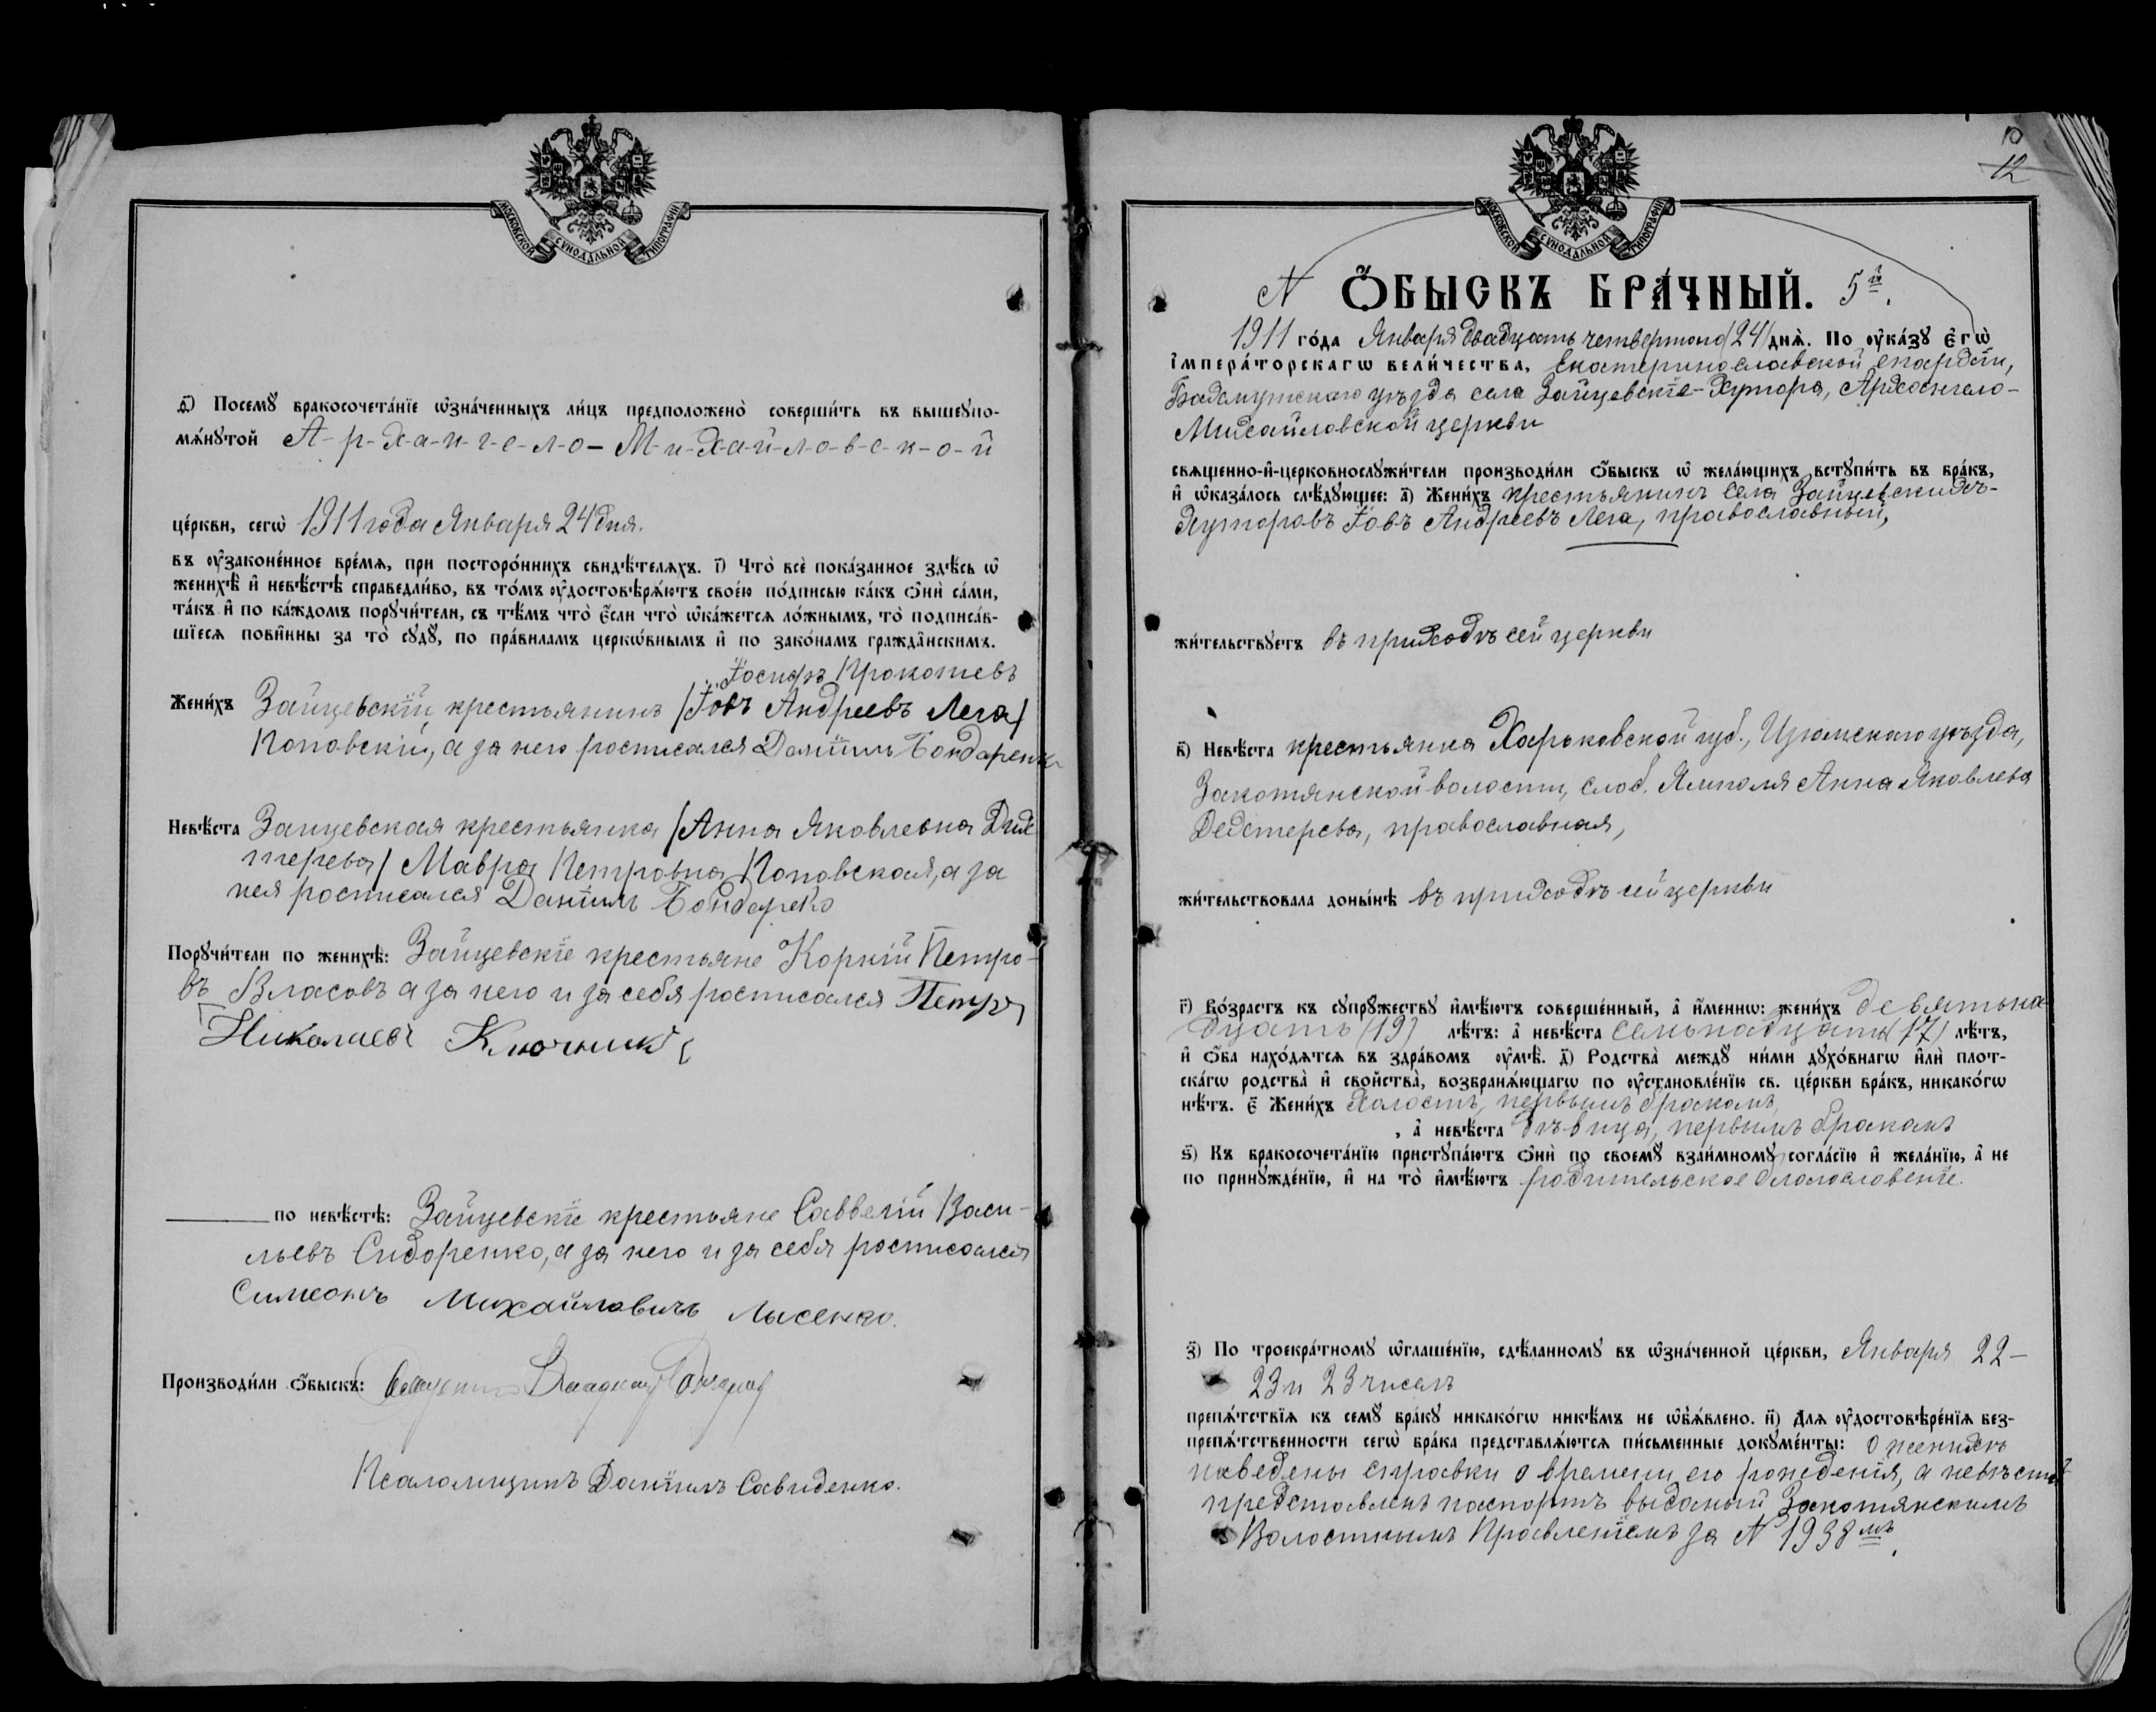 МОСКОВСКОЙ СѴНОДАЛЬНОЙ ТИПОГРАФІИ
ѳ҃) Посемꙋ̀ бракосочета́нїе ѡ҆зна́ченныхъ ли́цъ предположено̀ соверши́ть въ вышеꙋпо-
мѧ́нꙋтой А-р-х-а-н-г-е-л-о-М-и-х-а-й-л-о-в-с-к-о-й
це́ркви, сегѡ̀ 1911 года Января 24 дня.
въ ᲂу҆законе́нное вре́мѧ, при посторо́ннихъ свидѣ́телѧхъ. і҃) Что̀ всѐ пока́занное здѣ́сь ѡ҆
женихѣ̀ и҆ невѣ́стѣ справедли́во, въ то́мъ ᲂу҆достовѣрѧ́ютъ свое́ю по́дписью ка́къ ѻ҆нѝ са́ми,
та́къ и҆ по ка́ждомъ порꙋчи́тели, съ тѣ́мъ что̀ є҆́сли что̀ ѡ҆ка́жетсѧ ло́жнымъ, то̀ подписа́в-
шїесѧ пови́нны за то̀ сꙋдꙋ̀, по пра́виламъ церкѡ́внымъ и҆ по зако́намъ гражда̑нскимъ.
Іосифъ Прокопіевъ
Жени́хъ Зайцевскій крестьянинъ /Іовъ Андреевъ Лега/
Поповскій, а за него росписался Даніилъ Бондаренко
Невѣ́ста Зайцевская крестьянка /Анна Яковлевна Дих
терева/ Мавра Петровна Поповская, а за
нея росписался Даніилъ Бондарено
Порꙋчи́тели по женихѣ̀: Зайцевскіе крестьяне Корній Петро-
въ Власовъ а за него и за себя росписался Петръ
Николаевъ Ключник
по невѣ́стѣ: Зайцевскіе крестьяне Савватій Васи-
льевъ Сидоренко, а за него и за себя росписался
Симеонъ Михайловичъ Лысенко.
Производи́ли ѻ҆́быскъ: Священникъ
Псаломщикъ Даніилъ Савиденко.
10
12
МОСКОВСКОЙ СѴНОДАЛЬНОЙ ТИПОГРАФІИ
N ѺБЫСКЪ БРА́ЧНЫЙ. 5й.
1911 го́да Января двадцать четвертаго (24) днѧ̀. По ᲂу҆ка́зꙋ є҆гѡ̀
і҆мпера́торскагѡ вели́чества, Екатеринославской епархіи,
Бахмутскаго уѣзда села Зайцевскіе-Хутора, Архангело-
Михайловской церкви
свѧщенно-и҆-церковнослꙋжи́тели производи́ли ѻ҆́быскъ ѡ҆ жела́ющихъ встꙋпи́ть въ бра́къ,
и҆ ѡ҆каза́лось слѣ́дꙋющее: а҃) Жени́хъ крестьянинъ села Зайцевскихъ-
Хуторовъ Іовъ Андреевъ Лега, православный,
жи́тельствꙋетъ въ приходѣ сей церкви
в҃) Невѣ́ста крестьянка Харьковской губ., Изюмскаго уѣзда,
Закотянской волости, слоб. Ямполя Анна Яковлева
Дехтерева, православная,
жи́тельствовала доны́нѣ въ приходѣ сей церкви
г҃) Во́зрастъ къ сꙋпрꙋ́жествꙋ и҆мѣ́ютъ соверше́нный, а҆ и҆́меннѡ: жени́хъ девятьна-
дцать (19) лѣ́тъ: а҆ невѣ́ста семьнадцать (17) лѣ́тъ,
и҆ ѻ҆́ба нахо́дѧтсѧ въ здра́вомъ ᲂу҆мѣ̀. д҃) Родства̀ междꙋ̀ ни́ми дꙋхо́внагѡ и҆лѝ плот-
ска́гѡ родства̀ и҆ сво́йства̀, возбранѧ́ющагѡ по ᲂу҆становле́нїю св. це́ркви бра́къ, никако́гѡ
нѣ́тъ. є҃ Жени́хъ Холостъ, первымъ бракомъ,
, а҆ невѣ́ста дѣвица, первымъ бракомъ
ѕ҃) Къ бракосочета́нїю пристꙋпа́ютъ ѻ҆нѝ по своемꙋ̀ взаи́мномꙋ согла́сїю и҆ жела́нїю, а҆ не
по принꙋжде́нїю, и҆ на то̀ и҆мѣ́ютъ родительское благословеніе.
з҃) По троекра́тномꙋ ѡ҆глаше́нїю, сдѣ́ланномꙋ въ ѡ҆зна́ченной це́ркви, Января 22-
23 и 23 чиселъ
препѧ́тствїѧ къ семꙋ̀ бра́кꙋ никако́гѡ никѣ́мъ не ѡ҆б̾ѧ́влено. и҃) Длѧ ᲂу҆достовѣре́нїѧ без-
препѧ́тственности сегѡ̀ бра́ка представлѧ́ютсѧ пи́сьменные докꙋме́нты: о женихѣ
наведены справки о времени его рожденія, а невѣстой
представленъ паспортъ выданый Закотянскимъ
Волостнымъ Правленіемъ за N 1938мъ.